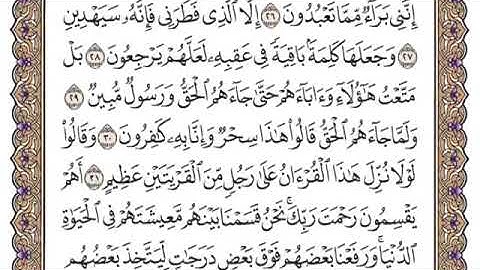 إِنَّنِي بَرَآءٌ مِّمَّا تَعْبُدُونَ ٢٦ إِلَّا ٱلَّذِي فَطَرَنِي فَإِنَّهُۥ سَيَهْدِينِ
٢٧ وَجَعَلَهَا كَلِمَةَۢ بَاقِيَةٗ فِي عَقِبِهِۦ لَعَلَّهُمْ يَرْجِعُونَ ٢٨ بَلْ
مَتَّعْتُ هَٰٓؤُلَآءِ وَءَابَآءَهُمْ حَتَّىٰ جَآءَهُمُ ٱلْحَقُّ وَرَسُولٞ مُّبِينٞ ٢٩
وَلَمَّا جَآءَهُمُ ٱلْحَقُّ قَالُواْ هَٰذَا سِحْرٞ وَإِنَّا بِهِۦ كَٰفِرُونَ ٣٠ وَقَالُواْ
لَوْلَا نُزِّلَ هَٰذَا ٱلْقُرْءَانُ عَلَىٰ رَجُلٖ مِّنَ ٱلْقَرْيَتَيْنِ عَظِيمٍ ٣١ أَهُمْ
يَقْسِمُونَ رَحْمَتَ رَبِّكَۚ نَحْنُ قَسَمْنَا بَيْنَهُم مَّعِيشَتَهُمْ فِي ٱلْحَيَوٰةِ
ٱلدُّنْيَاۚ وَرَفَعْنَا بَعْضَهُمْ فَوْقَ بَعْضٖ دَرَجَٰتٖ لِّيَتَّخِذَ بَعْضُهُم